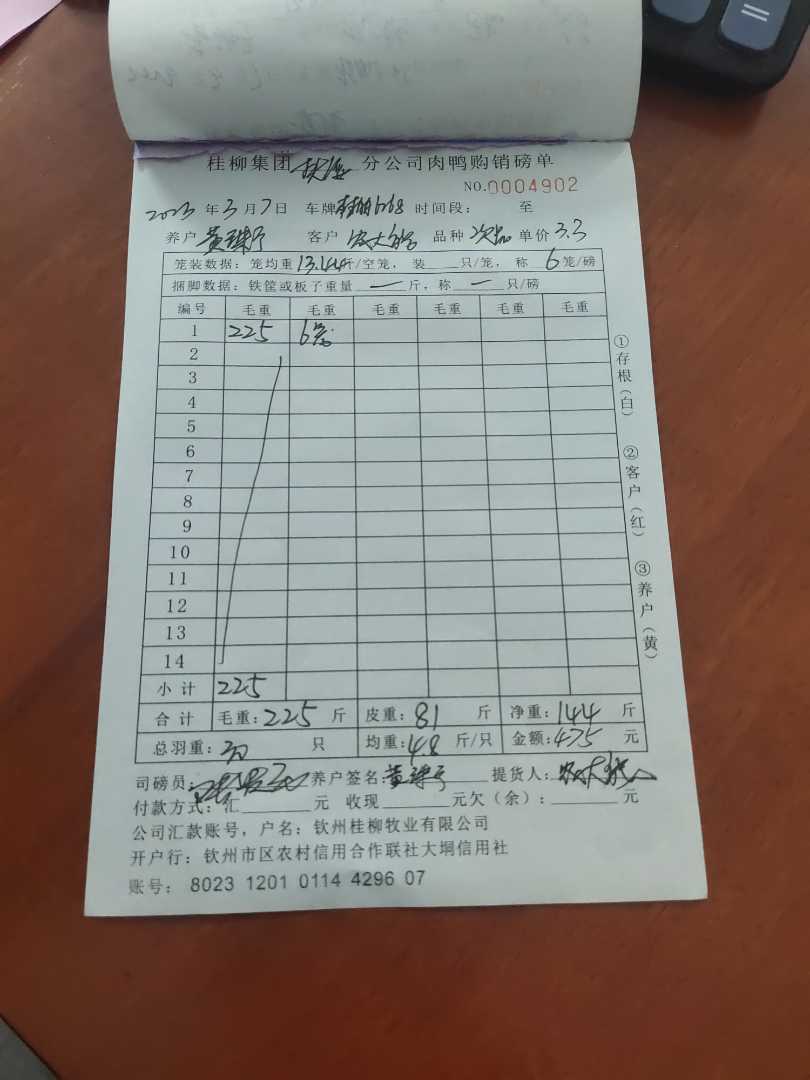 桂柳集团 钦港 分公司肉鸭购销磅单
NO.0004902
2023 年 3 月 7 日 车牌 时间段： 至
养户 黄 客户 农大 品种 次品 单价 3.3
笼装数据：笼均重 13.144 斤/空笼，装 只/笼，称 6 笼/磅
捆脚数据：铁筐或板子重量 一 斤，称 一 只/磅
编号 毛重 毛重 毛重 毛重 毛重 毛重
1 225 6笼
2
3
4
5
6
7
8
9
10
11
12
13
14
小计 225
合计 毛重：225 斤 皮重：81 斤 净重：144 斤
总羽重：30 只 均重：4.8 斤/只 金额：475 元
司磅员： 养户签名 黄 提货人： 农大
付款方式：汇 元 收现 元欠（余）： 元
公司汇款账号，户名：钦州桂柳牧业有限公司
开户行：钦州市区农村信用合作联社大垌信用社
账号： 8023 1201 0114 4296 07
①存根（白） ②客户（红） ③养户（黄）